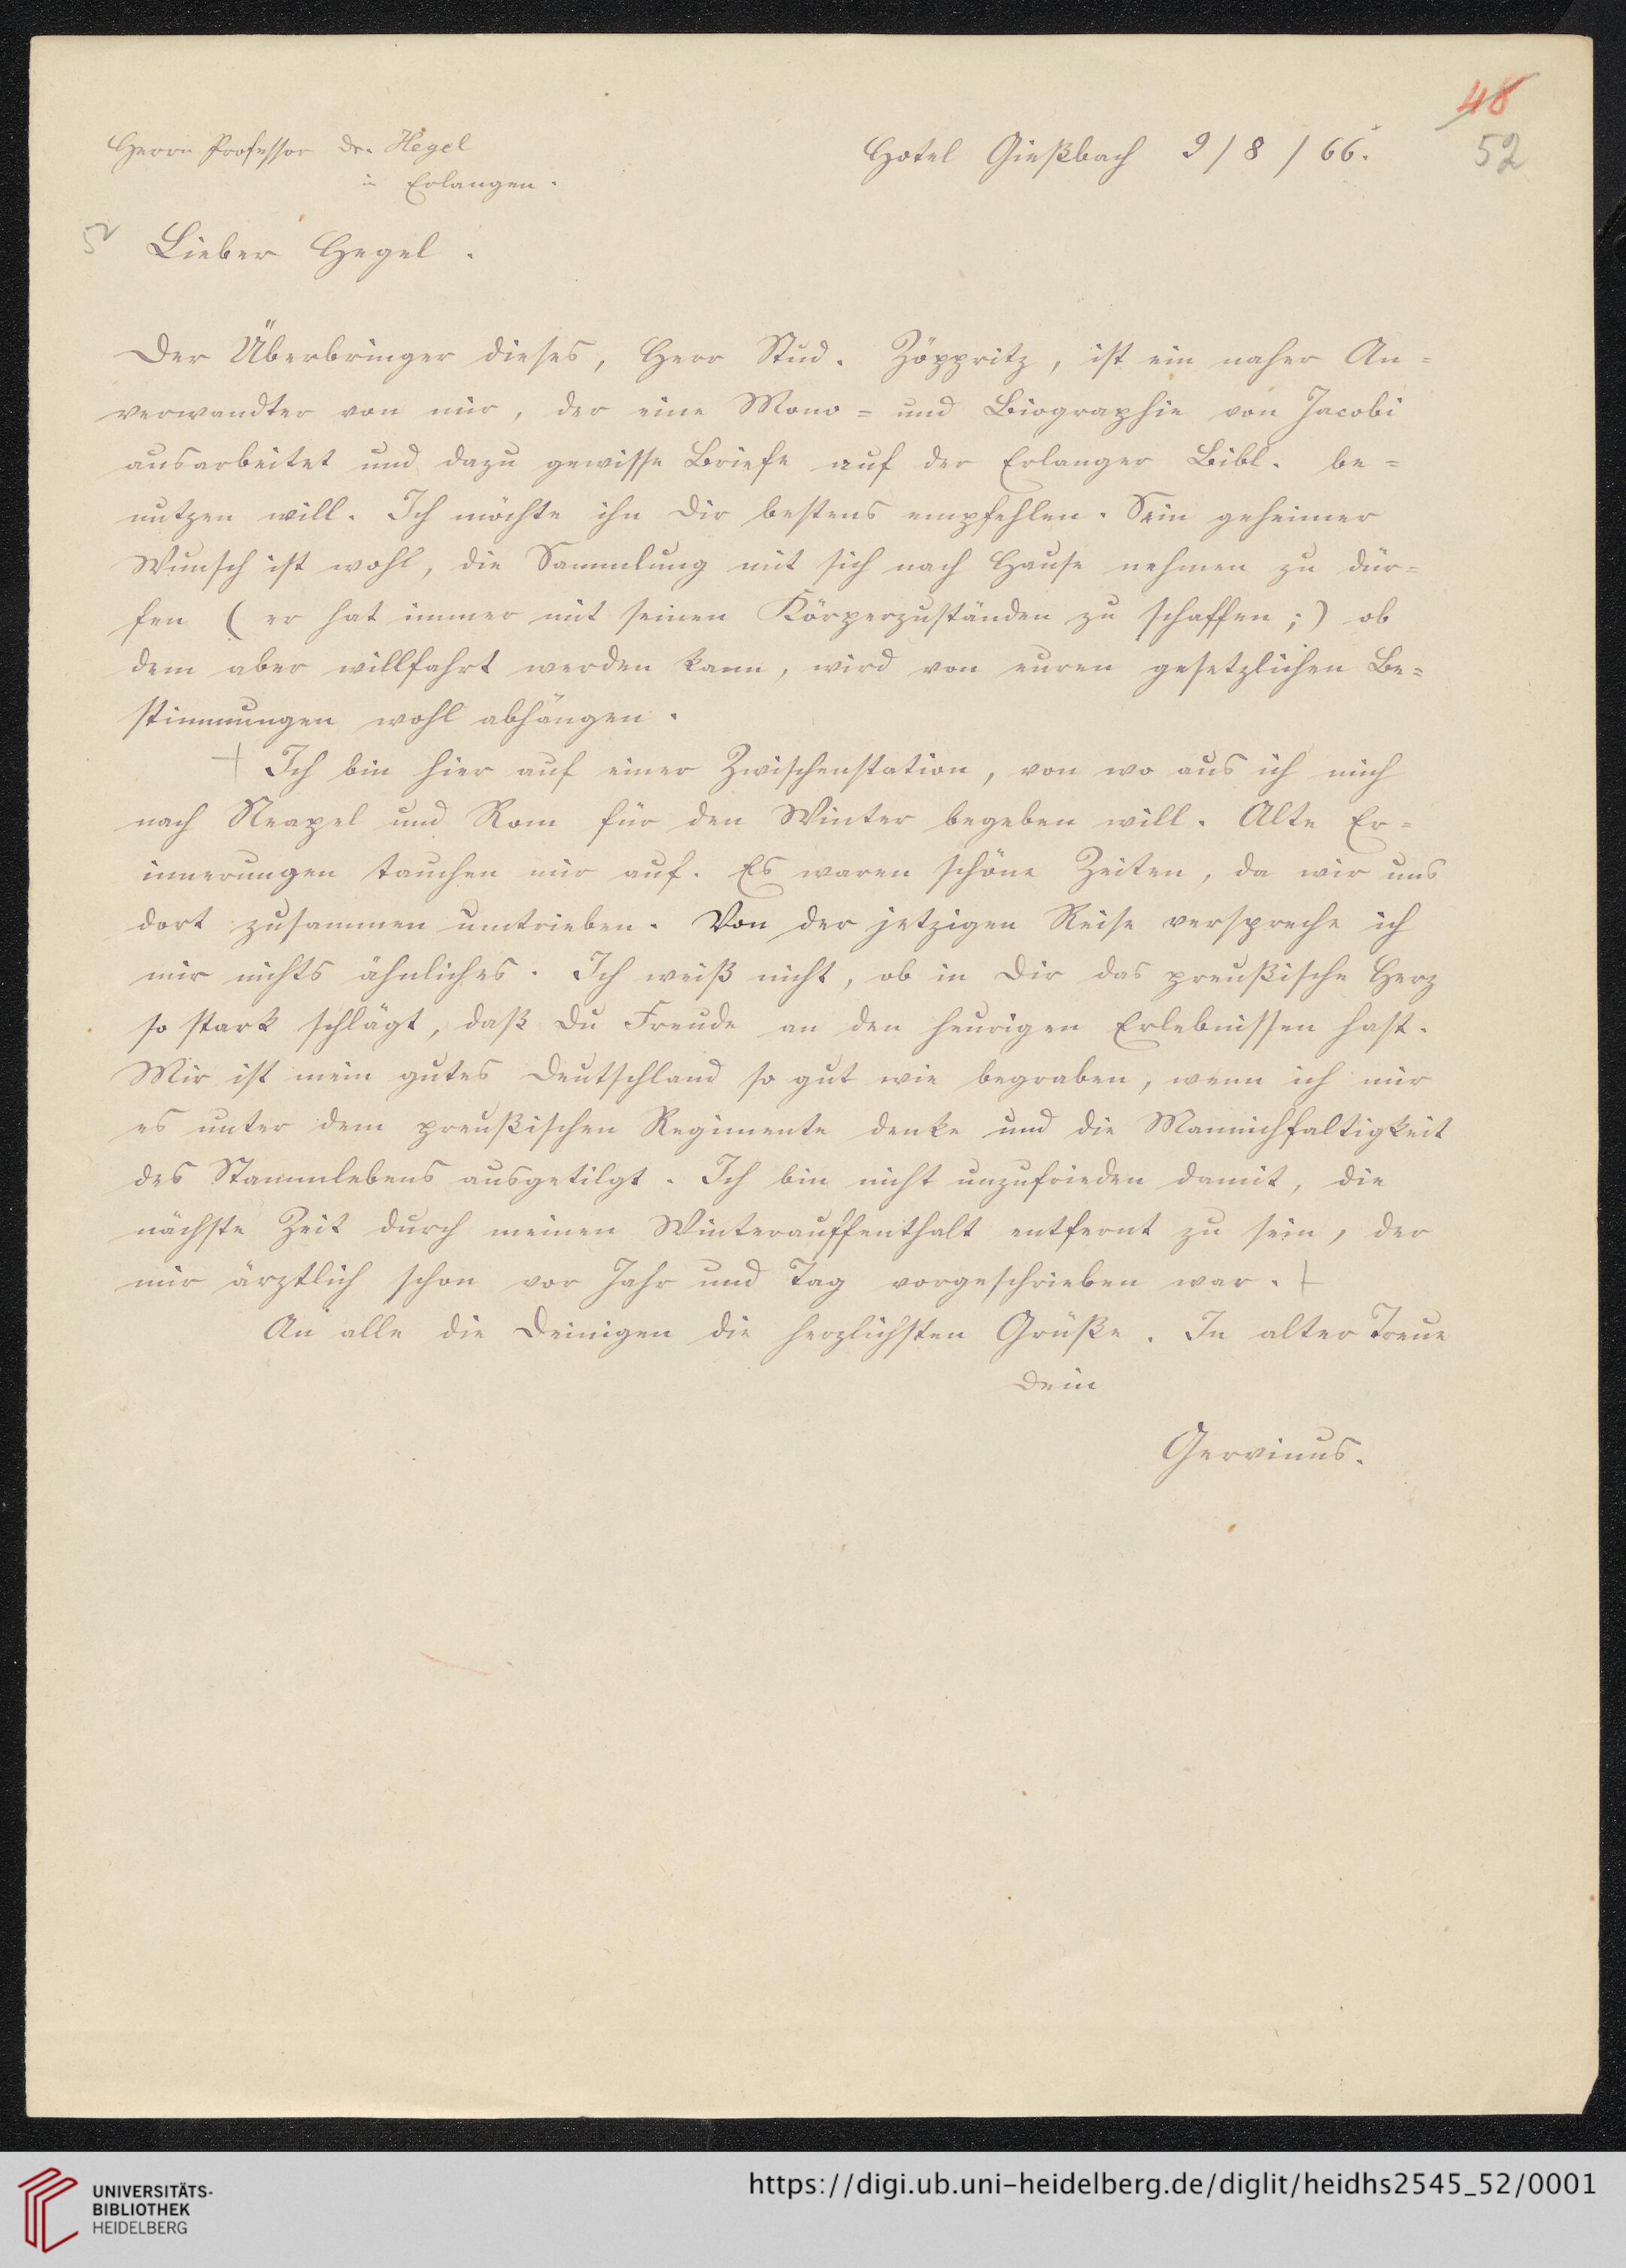 48
52
Herrn Professor Dr. Hegel
in Erlangen.
Hotel Gießbach 9/8/66.
Lieber Hegel.
Der Überbringer dieses, Herr Stud. Zöppritz, ist ein naher An=
verwandter von mir, der eine Mono= und Biographie von Jacobi
ausarbeitet und dazu gewisse Briefe auf der Erlanger Bibl. be=
nutzen will. Ich möchte ihn Dir bestens empfehlen. Sein geheimer
Wunsch ist wohl, die Sammlung mit sich nach Hause nehmen zu dür=
fen (er hat immer mit seinen Körperzuständen zu schaffen;) ob
dem aber willfahrt werden kann, wird von euren gesetzlichen Be=
stimmungen wohl abhängen.
Ich bin hier auf einer Zwischenstation, von wo aus ich mich
nach Neapel und Rom für den Winter begeben will. Alte Er=
innerungen tauchen mir auf. Es waren schöne Zeiten, da wir uns
dort zusammen umtrieben. Von der jetzigen Reise verspreche ich
mir nichts ähnliches. Ich weiß nicht, ob in Dir das preußische Herz
so stark schlägt, daß Du Freude an den heurigen Erlebnissen hast.
Mir ist mein gutes Deutschland so gut wie begraben, wenn ich mir
es unter dem preußischen Regimente denke und die Mannichfaltigkeit
des Stammlebens ausgetilgt. Ich bin nicht unzufrieden damit, die
nächste Zeit durch meinen Winterauffenthalt entfernt zu sein, der
mir ärztlich schon vor Jahr und Tag vorgeschrieben war.
An alle die Deinigen die herzlichsten Grüße. In alter Treue
Dein
Gervinus.
UNIVERSITÄTS-
BIBLIOTHEK
HEIDELBERG
https://digi.ub.uni-heidelberg.de/diglit/heidhs2545_52/0001